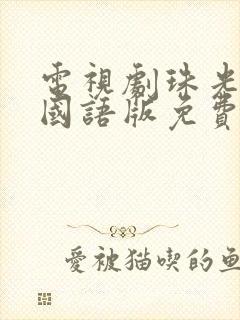 電視劇珠光
國語版免費
愛被猫喫的魚